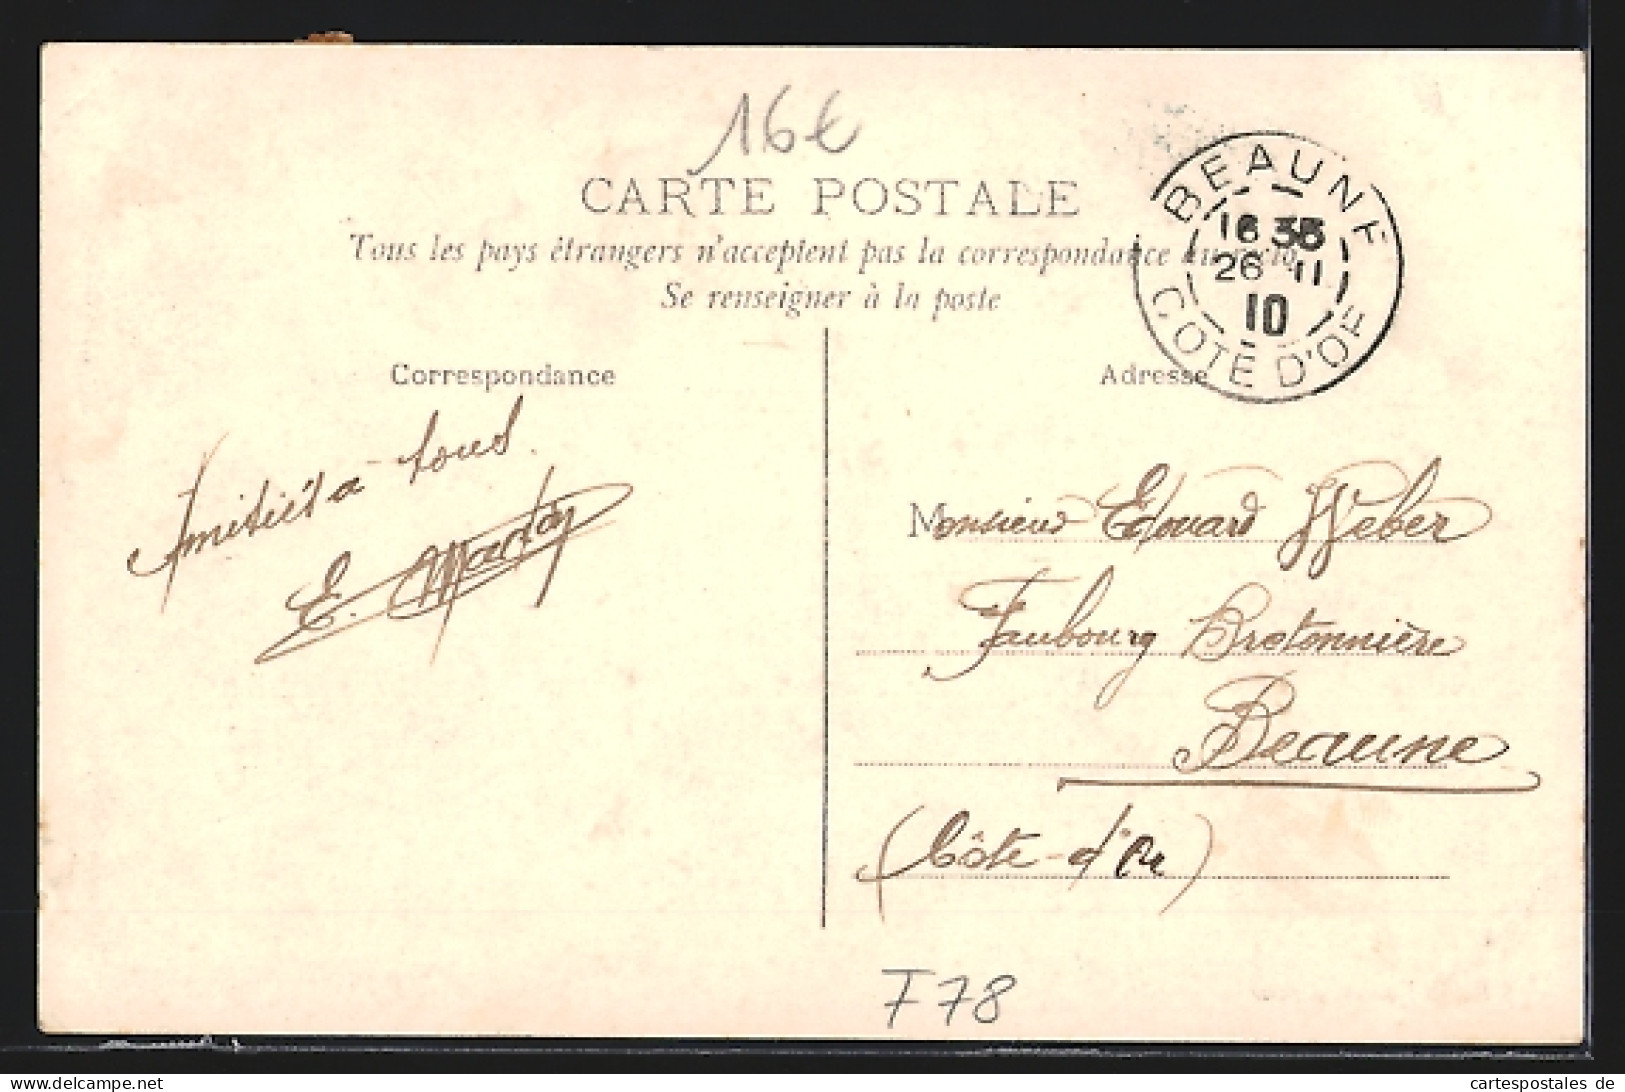 16€
CARTE POSTALE
Tous les pays étrangers n'acceptent pas la correspondance au recto,
Se renseigner à la poste
BEAUNE
26 -11
10
COTE D'OR
Correspondance
Adresse
Amitiés à tous.
E.
Monsieur Edouard Weber
Faubourg Bretonnière
Beaune
(Côte-d'Or)
F78
www.delcampe.net
cartespostales de